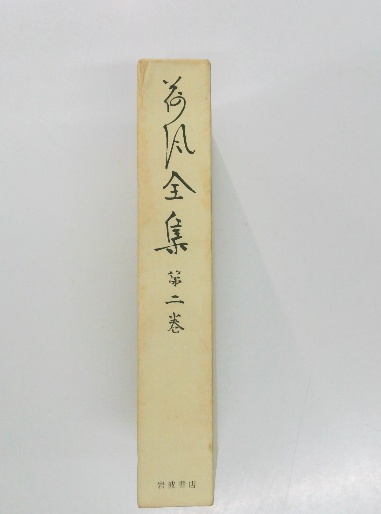 荷风全集
第二巻
岩波書店